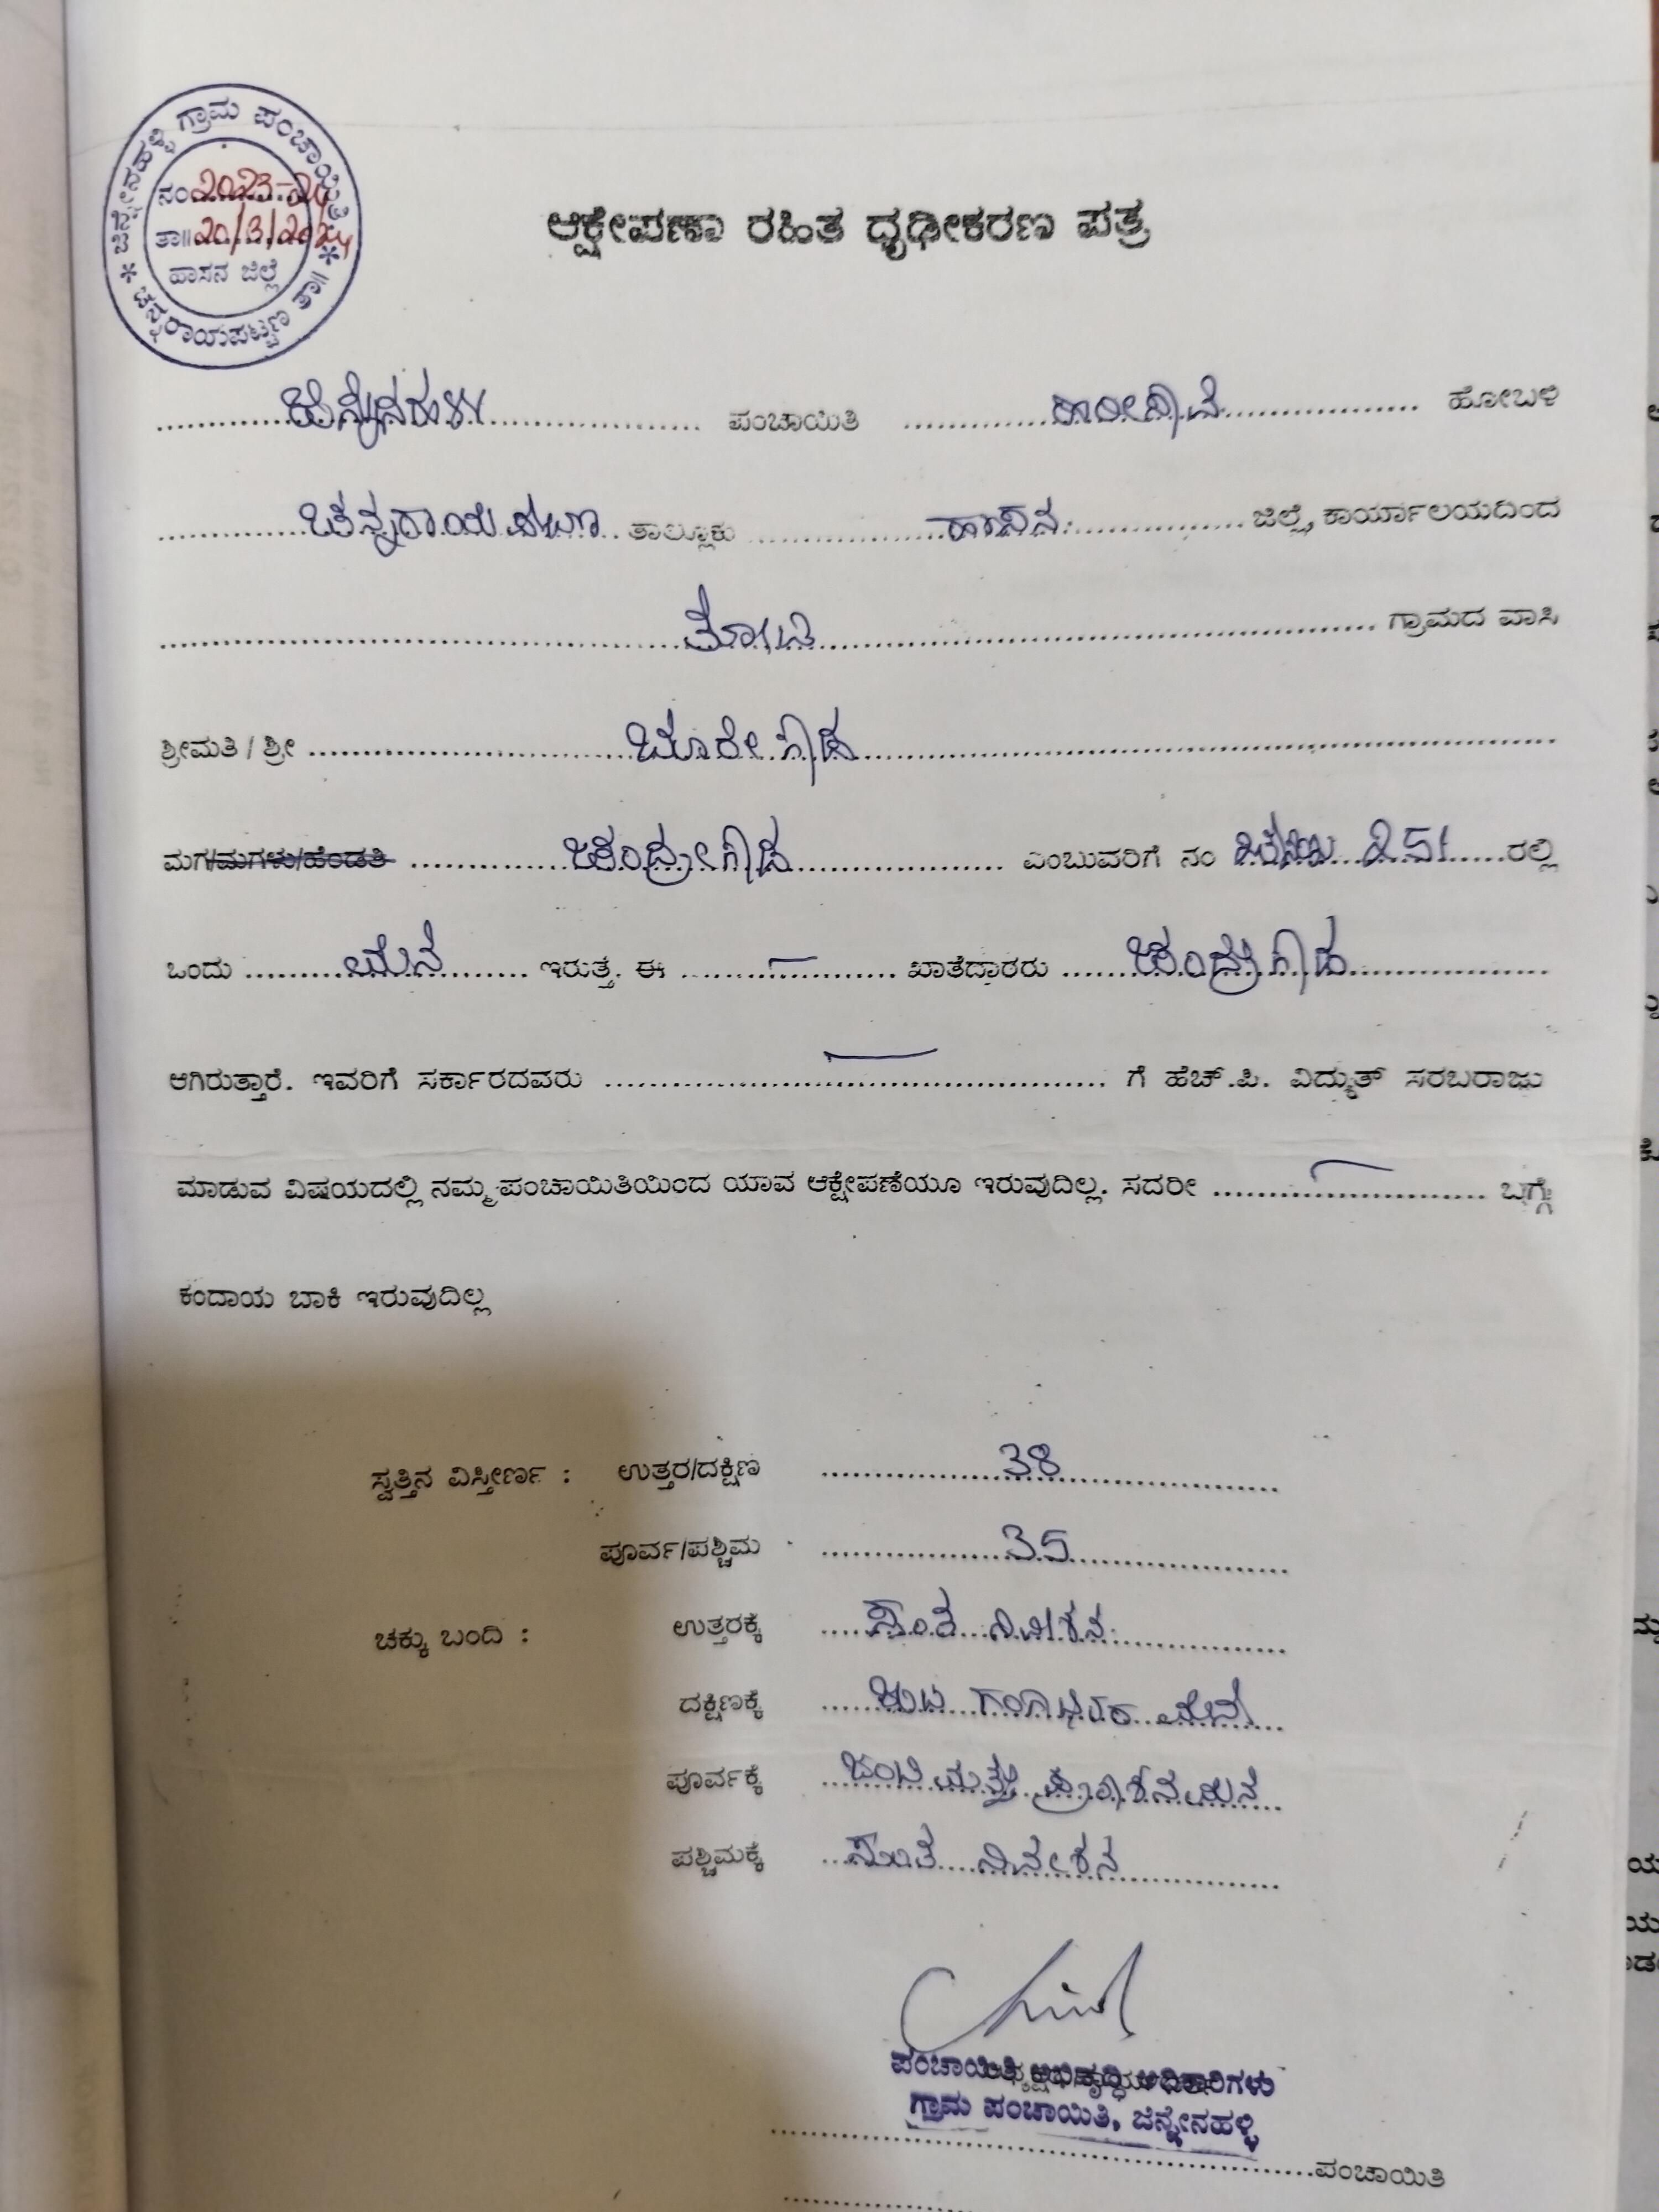 ಜಿನ್ನೇನಹಳ್ಳಿ ಗ್ರಾಮ ಪಂಚಾಯಿತಿ
ನಂ 2023-24
ತಾ॥ 20/3/2024
ಹಾಸನ ಜಿಲ್ಲೆ
* ಚನ್ನರಾಯಪಟ್ಟಣ ತಾ॥ *
ಆಕ್ಷೇಪಣಾ ರಹಿತ ದೃಢೀಕರಣ ಪತ್ರ
ಪಂಚಾಯಿತಿ ಹೋಬಳಿ
ಚನ್ನರಾಯಪಟ್ಟಣ ತಾಲ್ಲೂಕು ಹಾಸನ ಜಿಲ್ಲೆ, ಕಾರ್ಯಾಲಯದಿಂದ
ಗ್ರಾಮದ ವಾಸಿ
ಶ್ರೀಮತಿ / ಶ್ರೀ ಬೋರೇಗೌಡ
ಮಗ/ಮಗಳು/ಹೆಂಡತಿ ಚಂದ್ರೇಗೌಡ ಎಂಬುವರಿಗೆ ನಂ 251 ರಲ್ಲಿ
ಒಂದು ಮನೆ ಇರುತ್ತೆ. ಈ — ಖಾತೆದ್ದಾರರು ಚಂದ್ರೇಗೌಡ
ಆಗಿರುತ್ತಾರೆ. ಇವರಿಗೆ ಸರ್ಕಾರದವರು — ಗೆ ಹೆಚ್.ಪಿ. ವಿದ್ಯುತ್ ಸರಬರಾಜು
ಮಾಡುವ ವಿಷಯದಲ್ಲಿ ನಮ್ಮ ಪಂಚಾಯಿತಿಯಿಂದ ಯಾವ ಆಕ್ಷೇಪಣೆಯೂ ಇರುವುದಿಲ್ಲ. ಸದರೀ — ಬಗ್ಗೆ
ಕಂದಾಯ ಬಾಕಿ ಇರುವುದಿಲ್ಲ
ಸ್ವತ್ತಿನ ವಿಸ್ತೀರ್ಣ : ಉತ್ತರ/ದಕ್ಷಿಣ 38
ಪೂರ್ವ/ಪಶ್ಚಿಮ 35
ಚಕ್ಕು ಬಂದಿ : ಉತ್ತರಕ್ಕೆ ಸ್ವಂತ ನಿವೇಶನ
ದಕ್ಷಿಣಕ್ಕೆ ಮನೆ
ಪೂರ್ವಕ್ಕೆ ಮತ್ತು ಮನೆ
ಪಶ್ಚಿಮಕ್ಕೆ ಸ್ವಂತ ನಿವೇಶನ
ಪಂಚಾಯಿತಿ ಅಭಿವೃದ್ಧಿ ಅಧಿಕಾರಿಗಳು
ಗ್ರಾಮ ಪಂಚಾಯಿತಿ, ಜಿನ್ನೇನಹಳ್ಳಿ
ಪಂಚಾಯಿತಿ